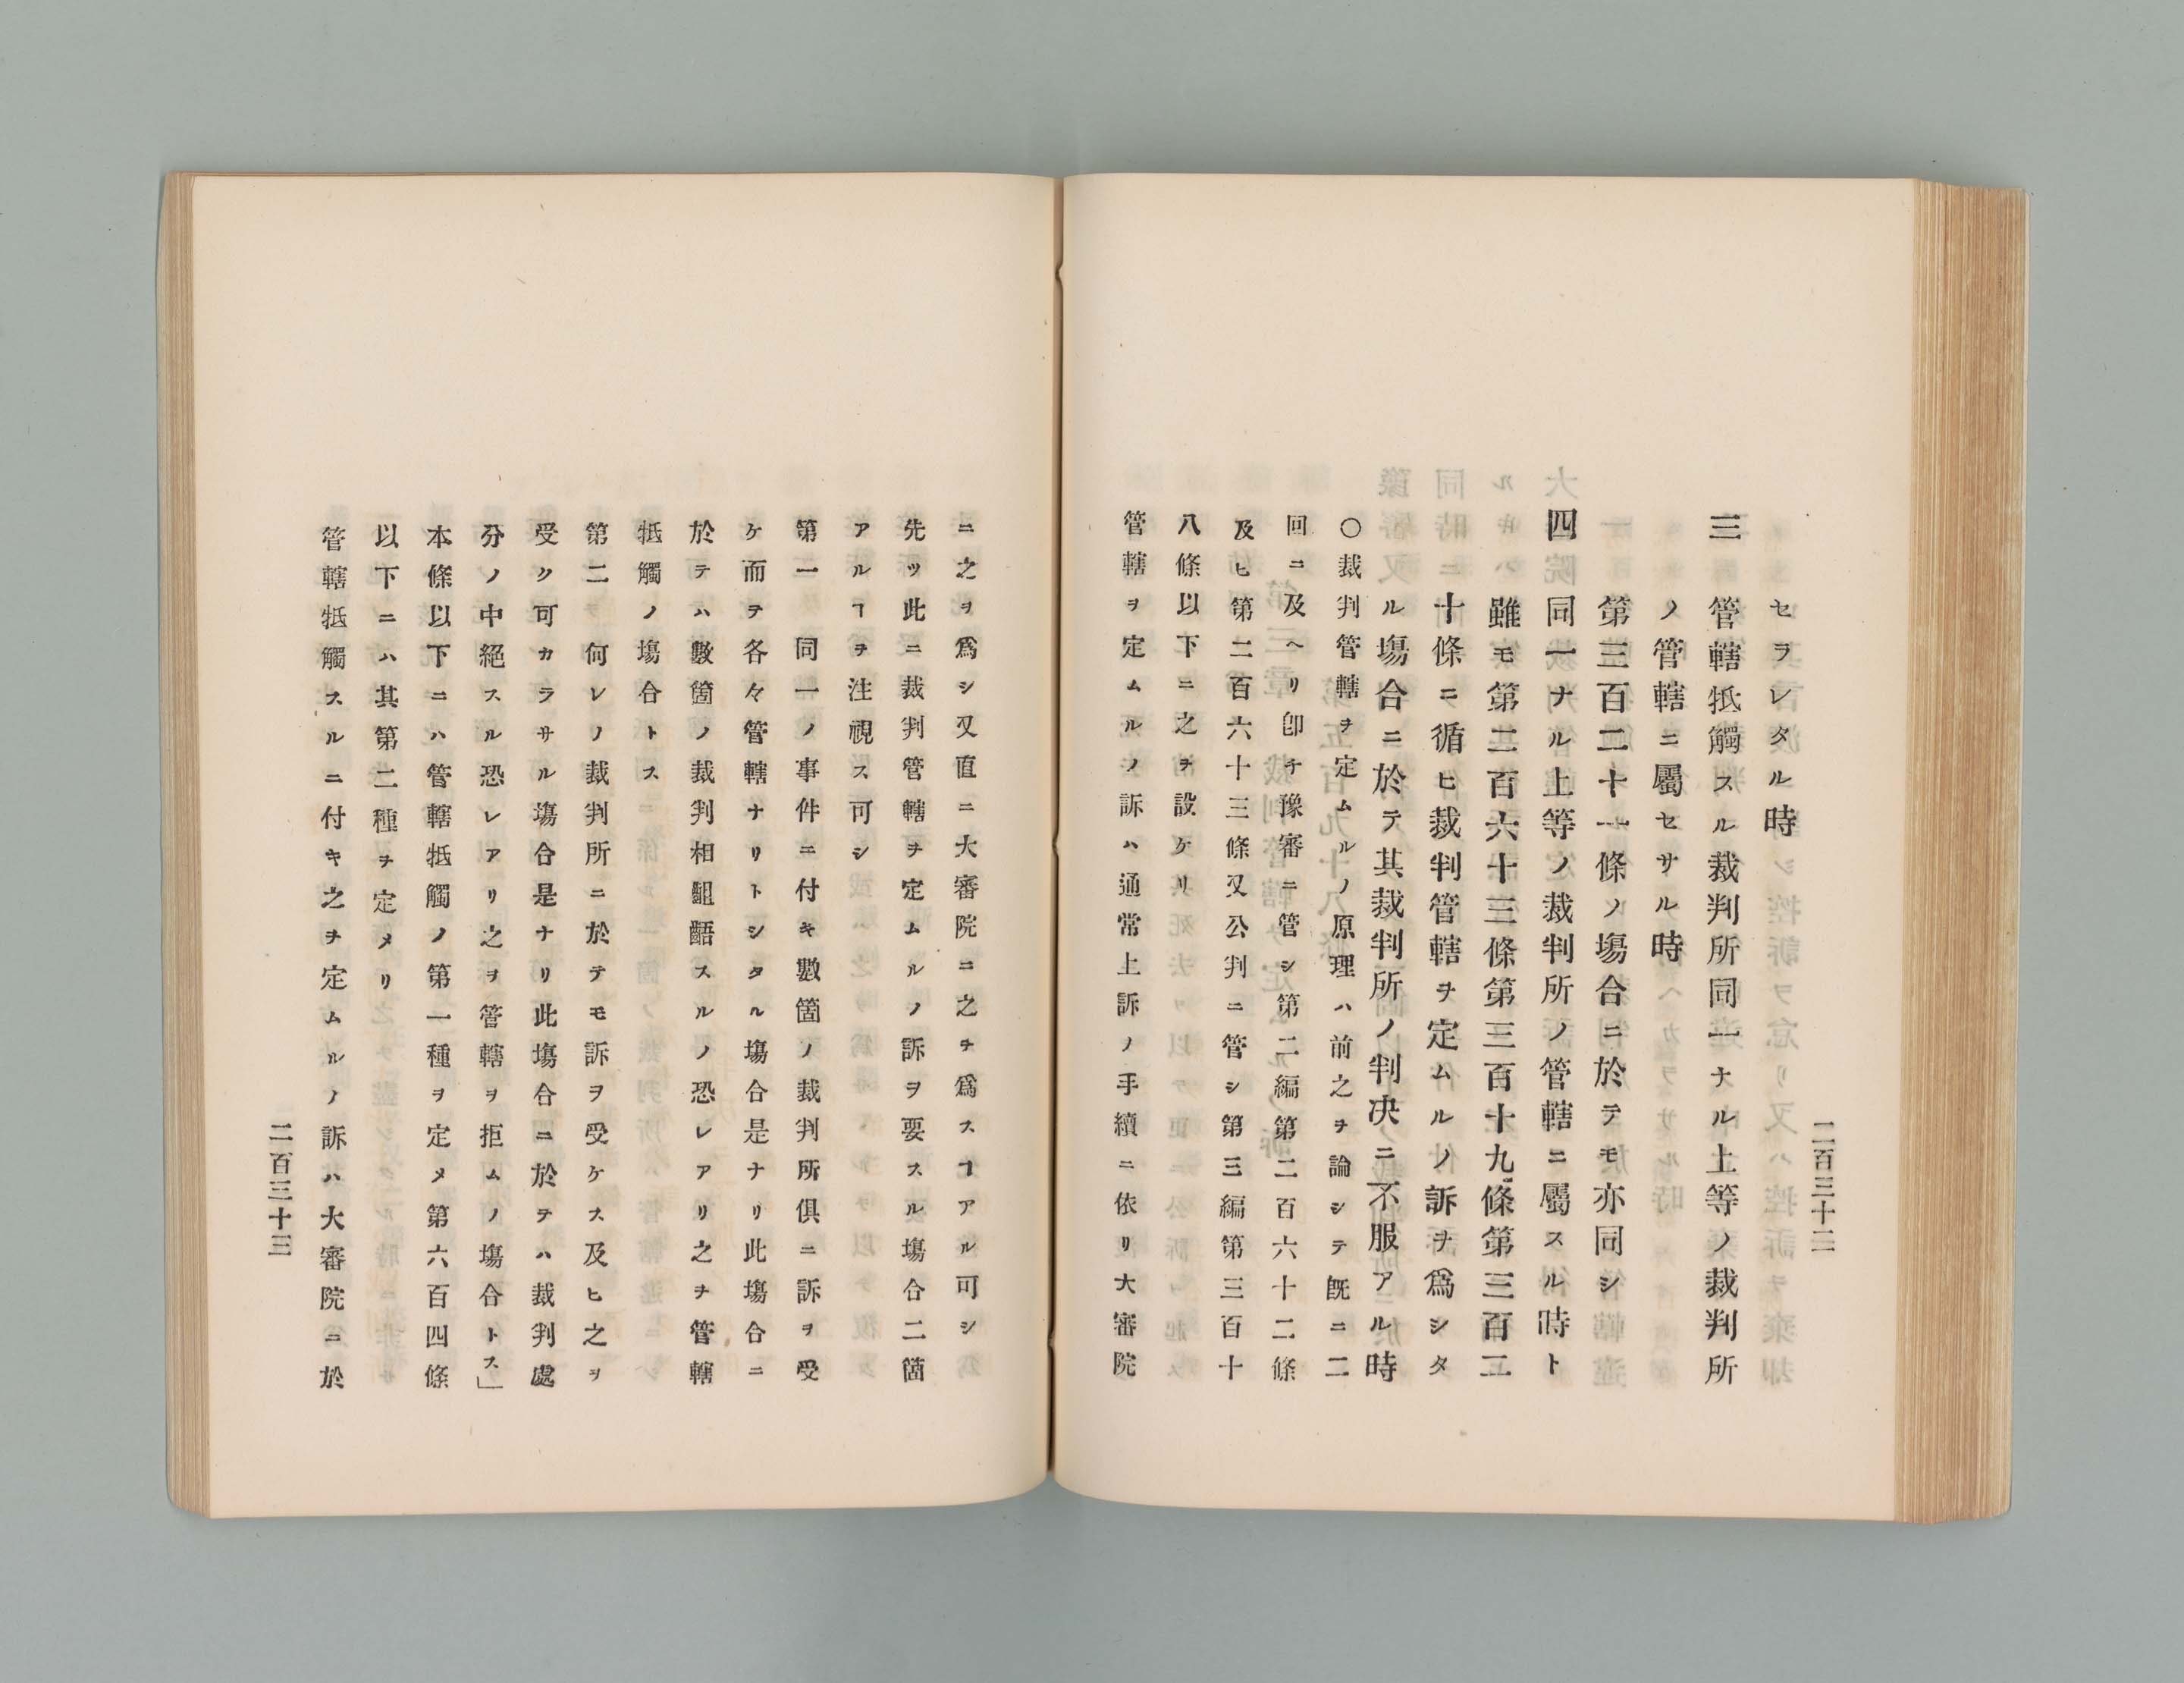 二百三十二
セラレタル時
三 管轄牴觸スル裁判所同一ナル上等ノ裁判所
ノ管轄ニ屬セサル時
第三百二十一條ノ塲合ニ於テモ亦同シ
四 同一ナル上等ノ裁判所ノ管轄ニ屬スル時ト
雖モ第二百六十三條第三百十九條第三百二
十條ニ循ヒ裁判管轄ヲ定ムルノ訴ヲ爲シタ
ル塲合ニ於テ其裁判所ノ判决ニ不服アル時
〇裁判管轄ヲ定ムルノ原理ハ前之ヲ論シテ既ニ二
回ニ及ヘリ卽チ豫審ニ管シ第二編第二百六十二條
及ヒ第二百六十三條又公判ニ管シ第三編第三百十
八條以下ニ之ヲ設ケリ
管轄ヲ定ムルノ訴ハ通常上訴ノ手續ニ依リ大審院
ニ之ヲ爲シ又直ニ大審院ニ之ヲ爲スヿアル可シ
先ッ此ニ裁判管轄ヲ定ムルノ訴ヲ要スル塲合二箇
アルヿヲ注視ス可シ
第一 同一ノ事件ニ付キ數箇ノ裁判所俱ニ訴ヲ受
ケ而ヲ各々管轄ナリトシタル塲合是ナリ此塲合ニ
於テハ數箇ノ裁判相齟齬スルノ恐レアリ之ヲ管轄
牴觸ノ塲合トス
第二 何レノ裁判所ニ於テモ訴ヲ受ケス及ヒ之ヲ
受ク可カラサル塲合是ナリ此塲合ニ於テハ裁判處
分ノ中絕スル恐レアリ之ヲ管轄ヲ拒ムノ塲合トス」
本條以下ニハ管轄牴觸ノ第一種ヲ定メ第六百四條
以下ニハ其第二種ヲ定メリ
管轄牴觸スルニ付キ之ヲ定ムルノ訴ハ大審院ニ於
二百三十三